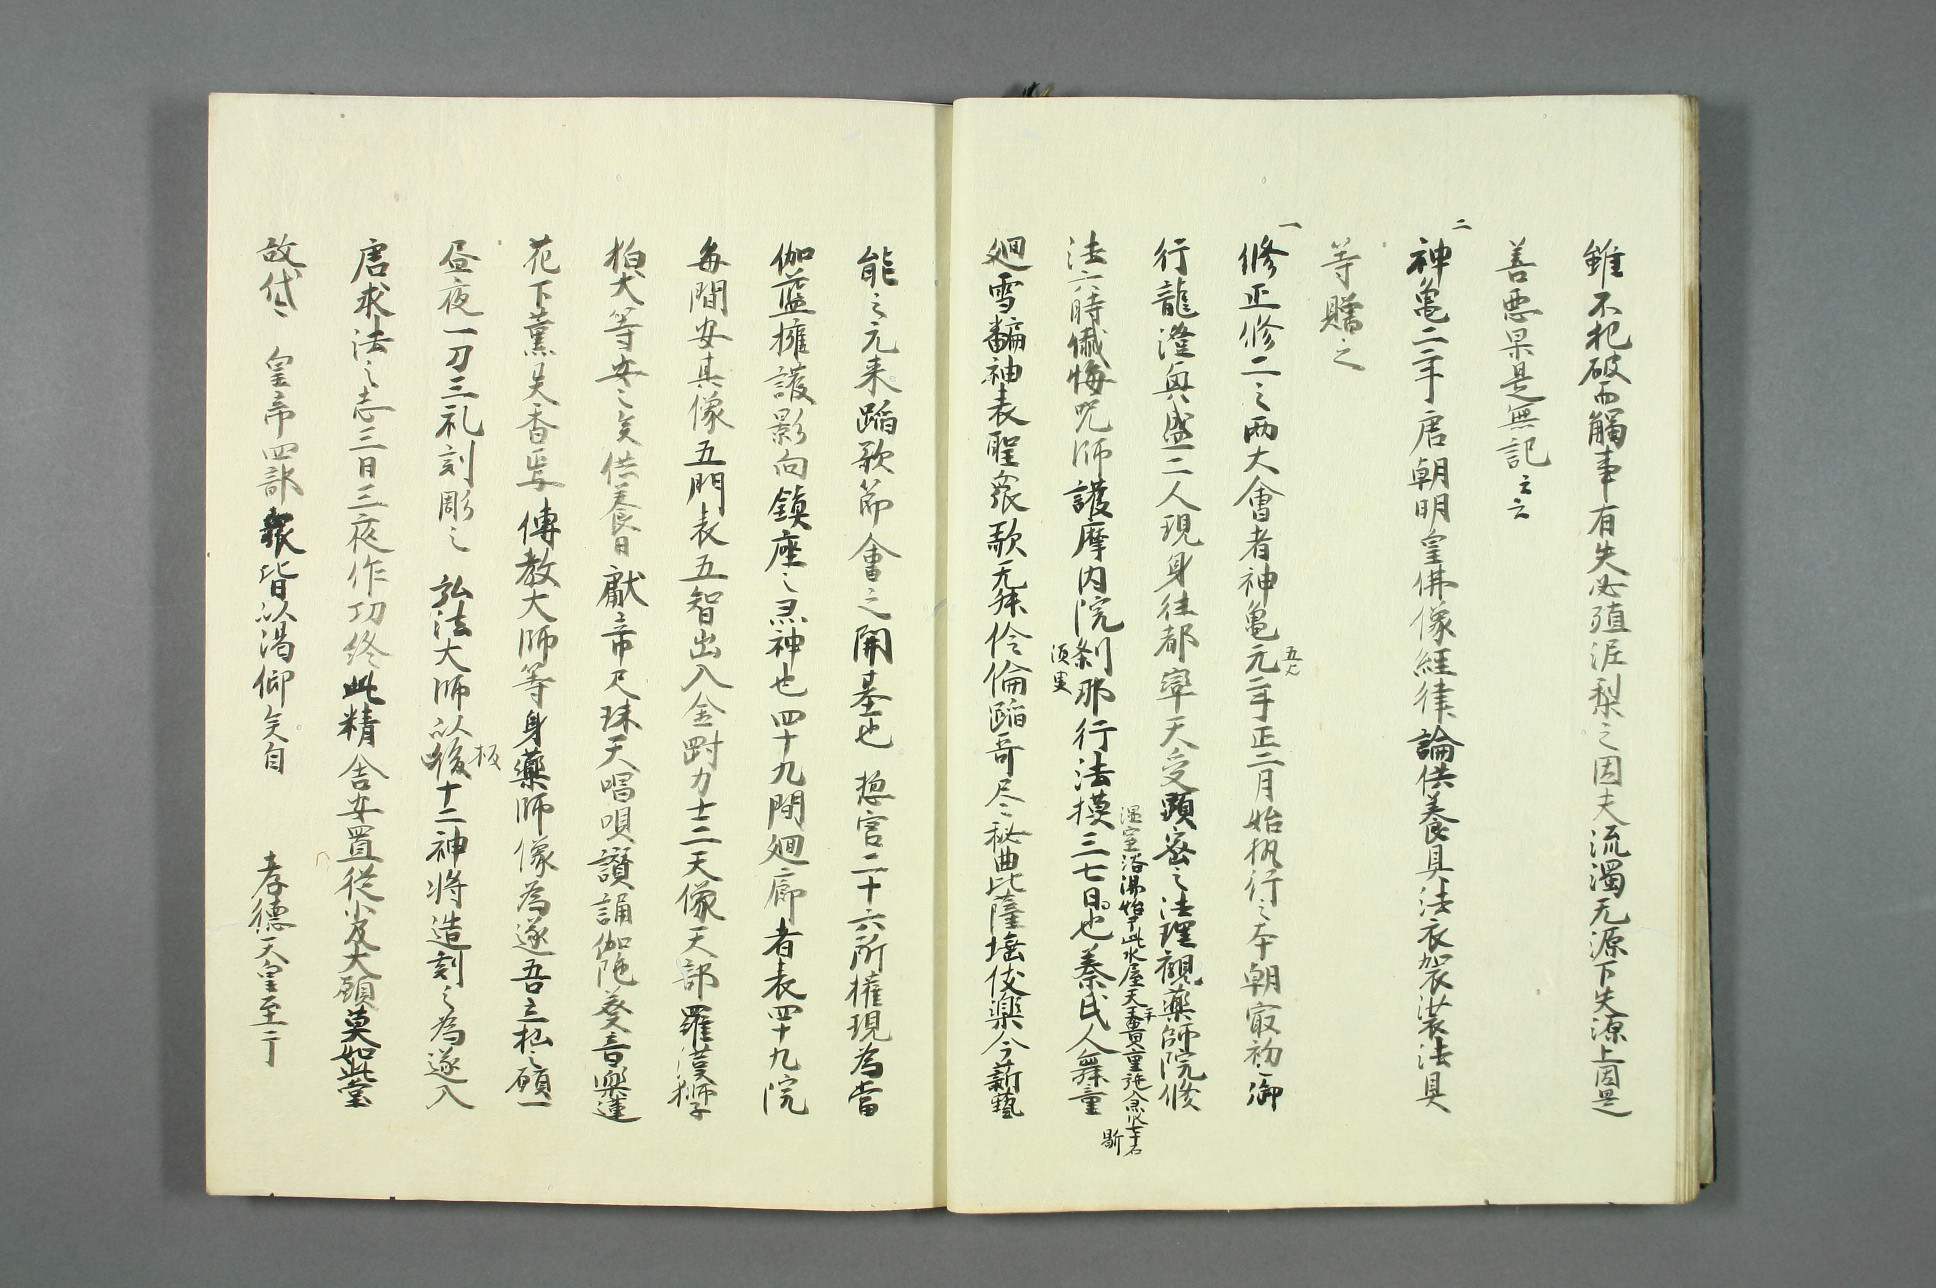 雖不犯破而觸事有失必殖泥梨之因夫流濁无源下失源上因是
善悪果是無記云云
二
神亀二年唐朝明皇佛像経律論供養具法衣袈裟法具
等贈之
一
修正修二之両大會者神亀元二年正二月始執行之本朝寂初御
五八
行龍澄興盛二人現身往都率天受顕密之法理観薬師院修
法六時懺悔呪師護摩内院刹那行法摸三七日也秦氏人舞童
須臾
湿室浴湯始于此水屋天童貴童
廻雪飜袖表聖衆歌无舞伶倫蹈哥尽秘曲比薩埵伎楽今薪藝
能之元来蹈歌節會之開基也 惣官二十六所権現為當
伽藍擁護影向鎮座之霊神也四十九間廻廊者表四十九院
毎間安其像五門表五智出入金剛力士二天像天部羅漢獅子
狛犬等安之矣供養日献帝尺珠天唱唄讃誦伽陀發音樂蓮
花下薫異香焉傳教大師等身薬師像為遂吾立杣之願一
昼夜一刀三礼刻彫之 弘法大師以後十二神将造刻之為遂入
板
唐求法之志三日三夜作功終此精舎安置従小及大願莫如此堂
故代々皇帝四部衆皆以渇仰矣自 孝徳天皇至于